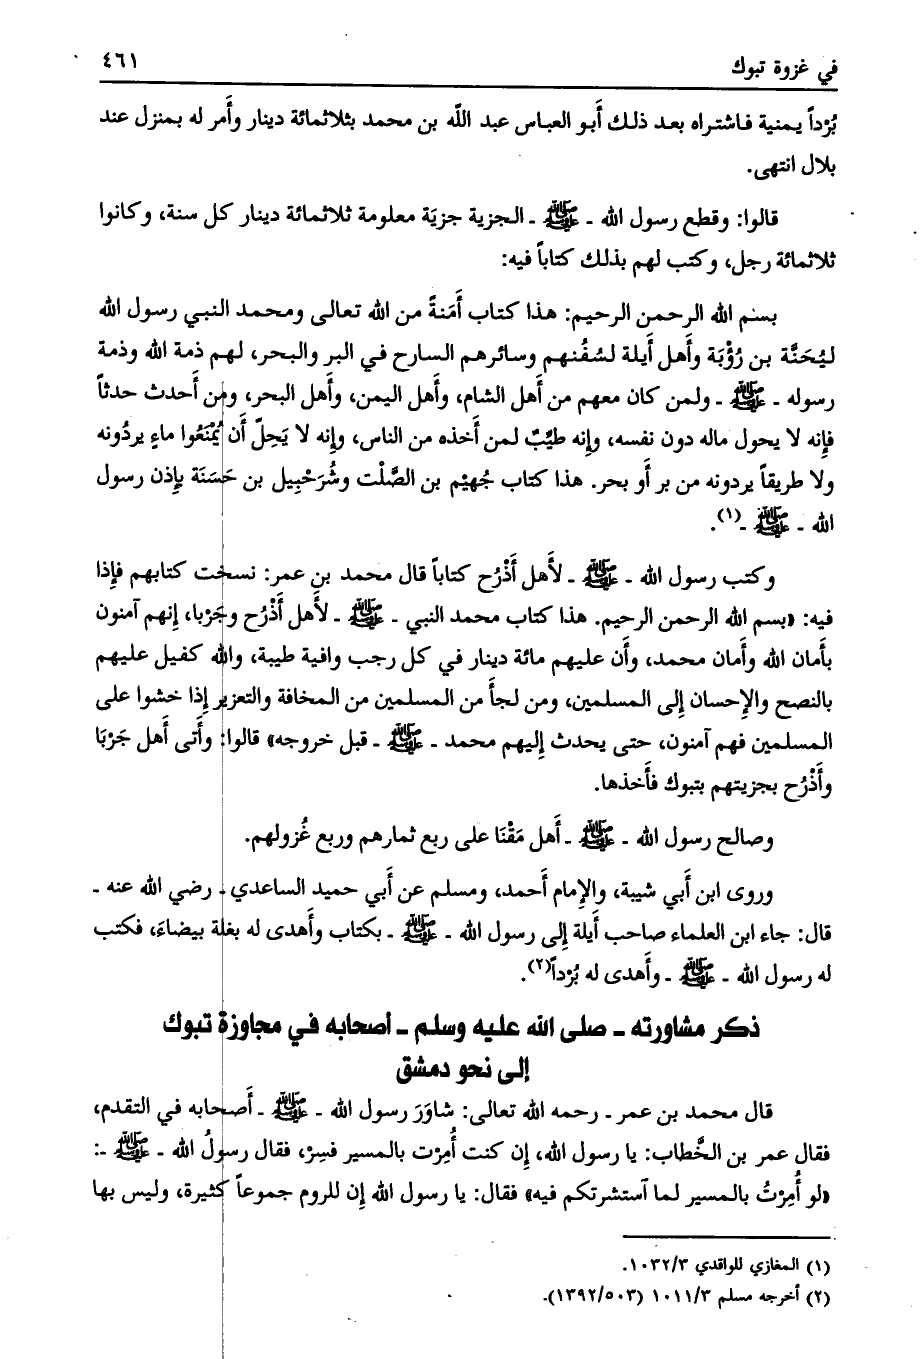 في غزوة تبوك ٤٦١
بُرْداً يمنية فاشتراه بعد ذلك أَبو العباس عبد اللّه بن محمد بثلاثمائة دينار وأَمر له بمنزل عند
بلال انتهى.
قالوا: وقطع رسول الله - ﷺ - الجزية جزيَة معلومة ثلاثمائة دينار كل سنة، وكانوا
ثلاثمائة رجل، وكتب لهم بذلك كتاباً فيه:
بسم الله الرحمن الرحيم: هذا كتاب أَمَنةً من الله تعالى ومحمد النبي رسول الله
ليُحَنَّة بن رُؤْبَة وأَهل أَيلة لسُفُنهم وسائرهم السارح في البر والبحر، لهم ذمة الله وذمة
رسوله - ﷺ - ولمن كان معهم من أَهل الشام، وأَهل اليمن، وأَهل البحر، ومن أَحدث حدثاً
فإِنه لا يحول ماله دون نفسه، وإِنه طيِّبٌ لمن أَخذه من الناس، وإِنه لا يَحِلّ أَن يُمْنَعُوا ماءِ يردُونه
ولا طريقاً يردونه من بر أَو بحر. هذا كتاب جُهيْم بن الصَّلْت وشُرَحْبِيل بن حَسَنَة بإِذن رسول
الله - ﷺ -(١).
وكتب رسول الله - ﷺ - لأَهل أَذْرُح كتاباً قال محمد بن عمر: نسخت كتابهم فإِذا
فيه: «بسم الله الرحمن الرحيم. هذا كتاب محمد النبي - ﷺ - لأَهل أَذْرُح وجَرْبا، إِنهم آمنون
بأَمان الله وأَمان محمد، وأَن عليهم مائة دينار في كل رجب وافية طيبة، والله كفيل عليهم
بالنصح والإِحسان إِلى المسلمين، ومن لجأَ من المسلمين من المخافة والتعزير إِذا خشوا على
المسلمين فهم آمنون، حتى يحدث إِليهم محمد - ﷺ - قبل خروجه» قالوا: وأَتى أَهل جَرْبَا
وأَذْرُح بجزيتهم بتبوك فأَخذها.
وصالح رسول الله - ﷺ - أَهل مَقْنَا على ربع ثمارهم وربع غُزولهم.
وروى ابن أَبي شيبة، والإِمام أَحمد، ومسلم عن أَبي حميد الساعدي - رضي الله عنه -
قال: جاء ابن العلماء صاحب أَيلة إِلى رسول الله - ﷺ - بكتاب وأَهدى له بغلة بيضاءَ، فكتب
له رسول الله - ﷺ - وأَهدى له بُرْداً(٢).
ذكر مشاورته - صلى الله عليه وسلم - أصحابه في مجاوزة تبوك
إلى نحو دمشق
قال محمد بن عمر - رحمه الله تعالى: شاوَرَ رسول الله - ﷺ - أَصحابه في التقدم،
فقال عمر بن الخَّطاب: يا رسول الله، إِن كنت أُمِرْت بالمسير فسِرْ، فقال رسولُ الله - ﷺ -:
«لو أُمِرْتُ بالمسير لما آستشرتكم فيه» فقال: يا رسول الله إِن للروم جموعاً كثيرة، وليس بها
(١) المغازي للواقدي ١٠٣٢/٣.
(٢) أخرجه مسلم ١٠١١/٣ (١٣٩٢/٥٠٣).